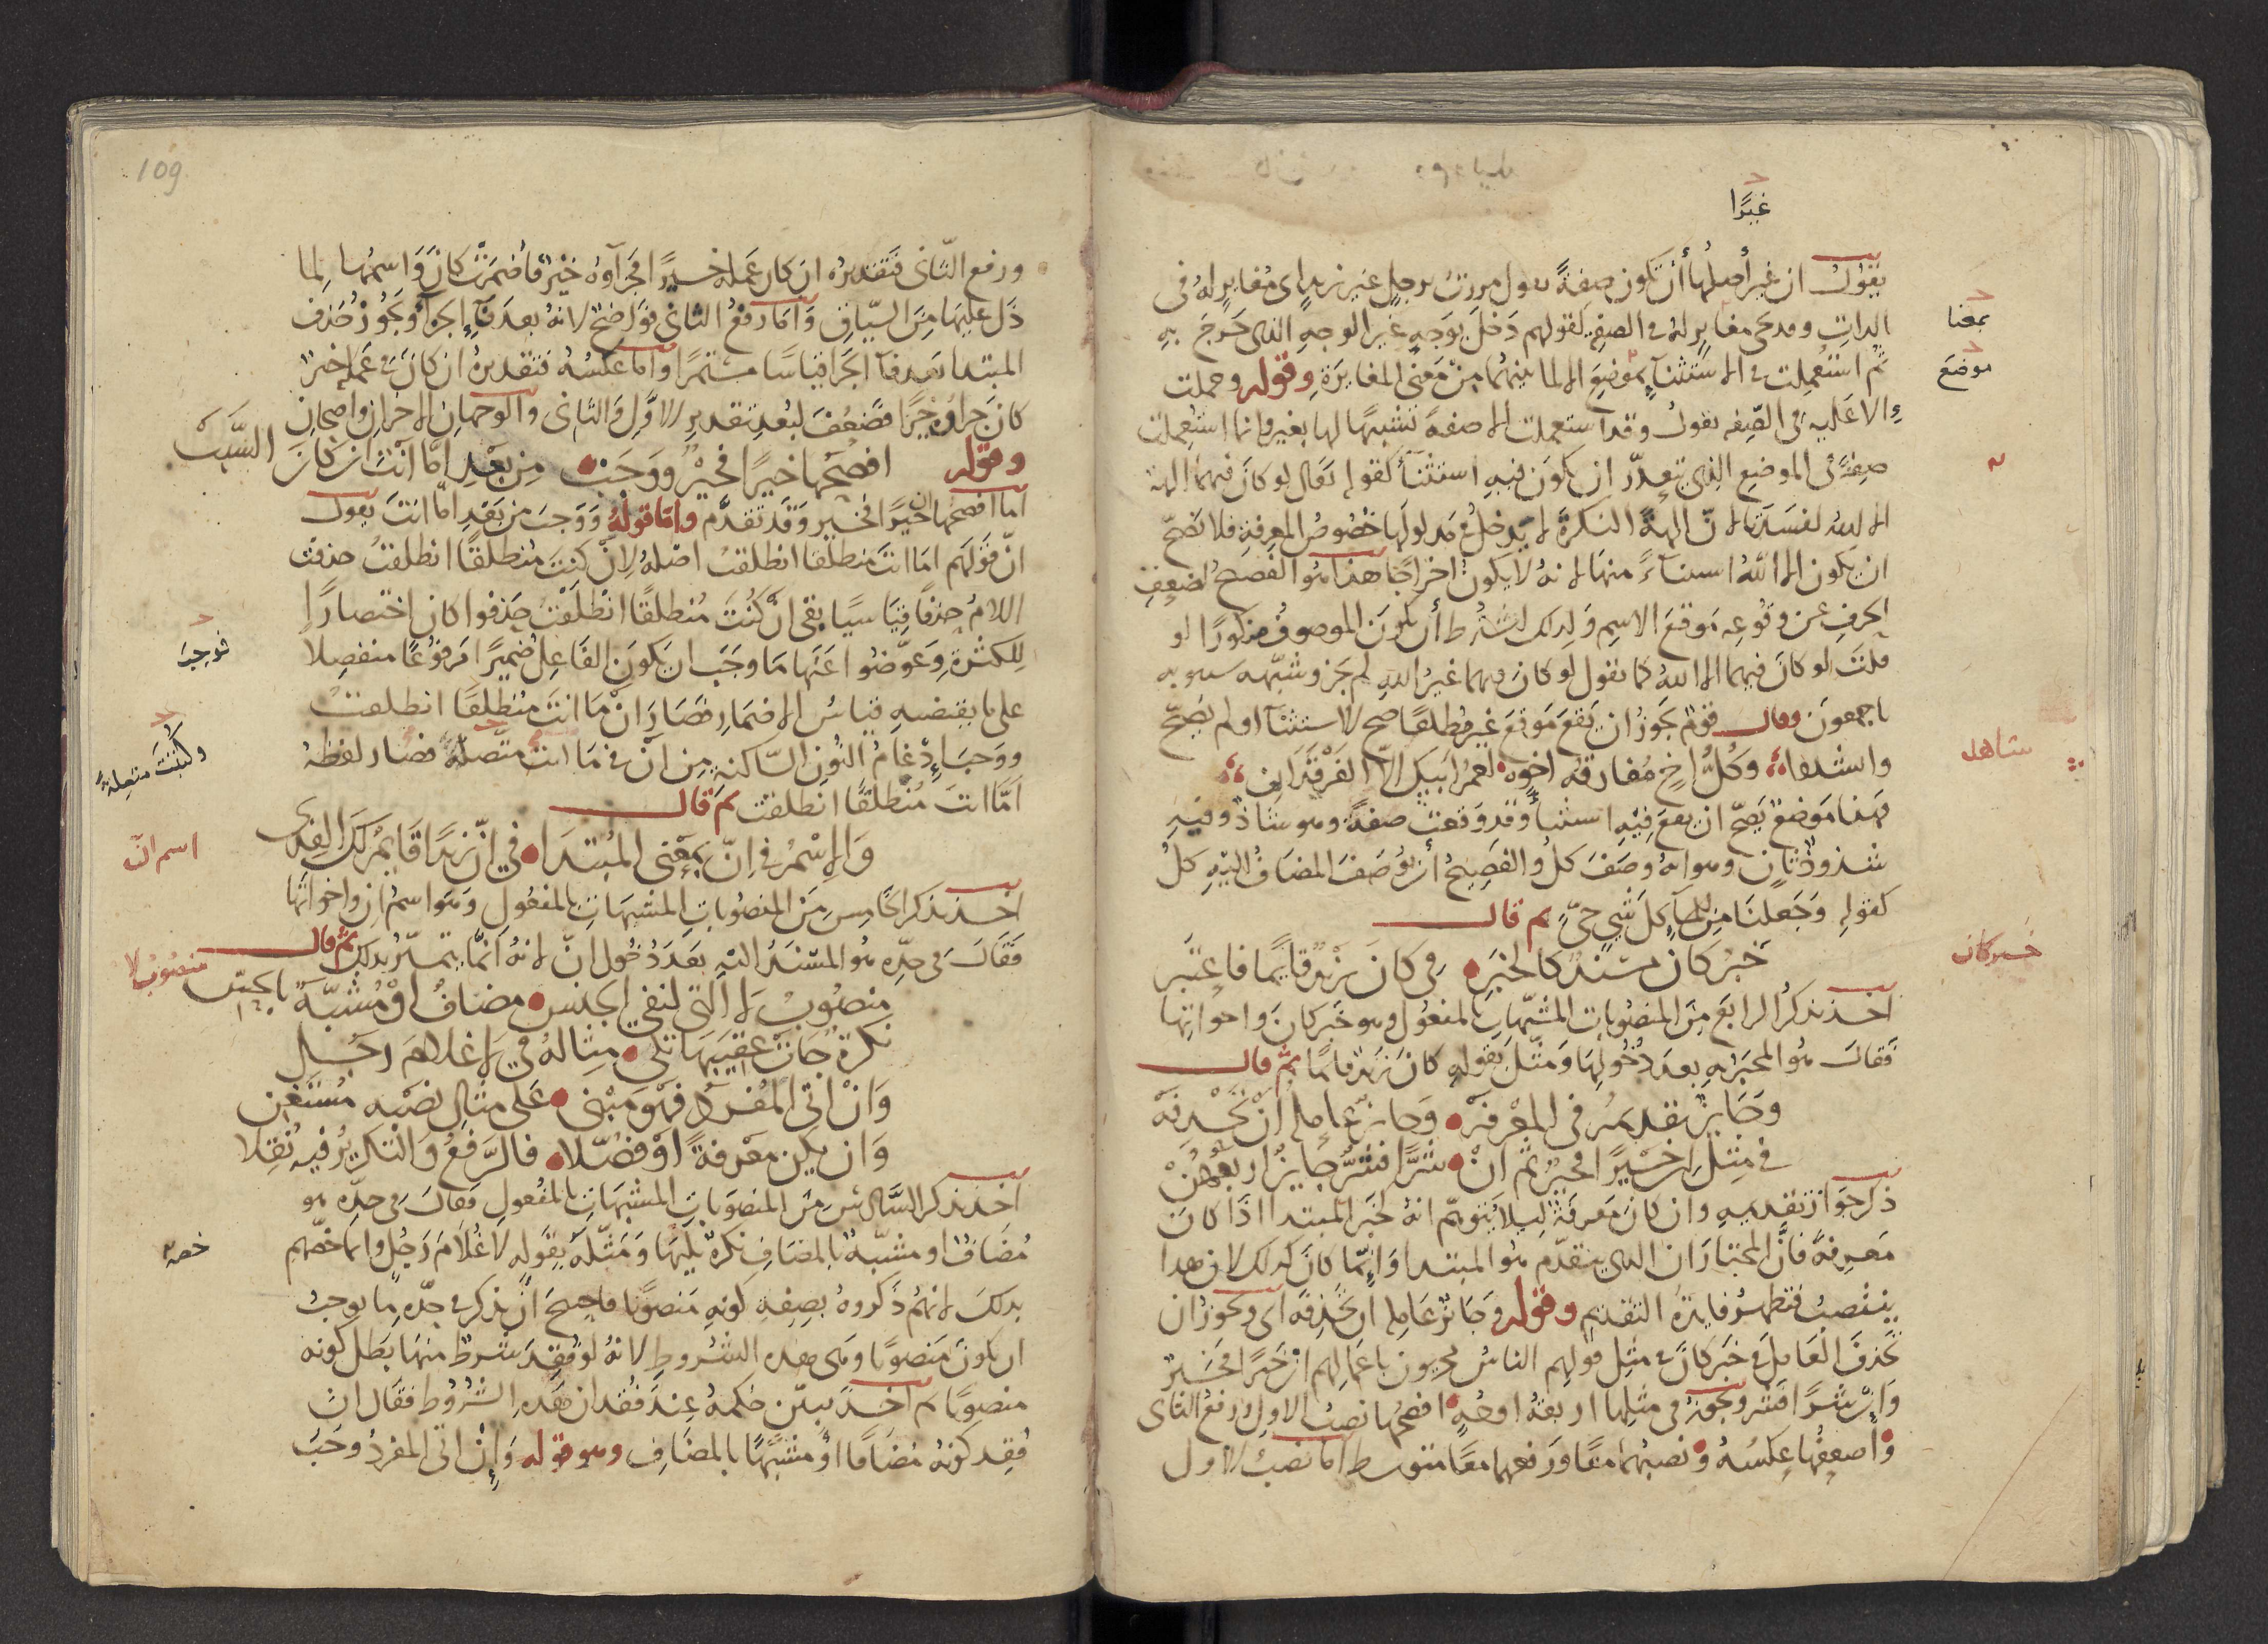 غيرًا
يقول ان غير أصلها أن تكون صفة تقول مررت برجل غير زيد اى مغاير له فى
الذات وقد تجى مغاير له فى الصفه كقولهم دخل بوجه غير الوجه الذى خرج به
ثم استعملت فى الاستثنآء بموضع الا لما بينهما من معنى المغايرة وقوله وحملت
الا عليه فى الصفه يقول وقد استعملت الا صفة تشبيهًا لها بغير وانما استعملت
صفة فى الموضع الذى يتعذر ان يكون فيه استثنآء كقوله تعالى لو كان فيهما الهة
الا الله لفسدتا لان الهة النكرة لا يدخل فى مدلولها خصوص المعرفة فلا تصح
ان يكون الا الله استثنآءً منها لانه لا يكون اخراجًا هذا هو الفصيح لضعف
الحرف عن وقوعه موقع الاسم ولذلك اشترط أن يكون الموصوف مذكورًا لو
قلت لو كان فيهما الا الله كما تقول لو كان فيهما غير الله لم يجز وشبهه سيبويه
باجمعون وقال قوم يجوز ان يقع موقع غير مطلقًا صح الاستثنآء او لم يصح
وانشدوا وكل اخ مفارقه اخوه لعمر ابيك الا الفرقدان
فهذا موضع يصح ان يقع فيه استثنآء وقد وقعت صفة وهو شاذ وفيه
شذوذ ثان وهو انه وصف كل والفصيح أن يوصف المضاف اليه كل
كقوله وجعلنا من المآء كل شى حى ثم قال
خبر كان مسند كالخبر فى كان زيد قايما فاعتبر
اخذ يذكر الرابع من المنصوبات المشبهات بالمفعول وهو خبر كان واخواتها
فقال هو المخبر به بعد دخولها ومثل بقوله كان زيد قائما ثم قال
وجايز تقديمه فى المعرفه وجايز عامله ان تحذفه
فى مثل ان خيرًا فخير ثم ان شرًّا فشر جايز اربعهن
ذكر جواز تقديمه وان كان معرفة ليلا يتوهم انه كخبر المبتدا اذا كان
معرفة فان المختار ان الذى يتقدم هو المبتدا وانما كان كذلك لان هذا
ينتصب فتظهر فايدة التقديم وقوله وجائز عامله ان تحذفه اى ويجوز ان
تحذف العامل فى خبر كان فى مثل قولهم الناس مجزيون باعمالهم ان خيرًا فخير
وان شرًا فشر ويجوز فى مثلها اربعة اوجه افصحها نصب الاول ورفع الثانى
وأضعفها عكسه ونصبهما معًا ورفعهما معًا متوسط اما نصب الاول
بمعنا
موضع
شاهد
خبر كان
109
ورفع الثانى فتقديره ان كان عمله خيرًا فجزآوه خير فأضمرت كان واسمها لما
دل عليها من السياق واما رفع الثانى فواضح لانه بعد فآء الجزآء ويجوز حذف
المبتدا بعد فآء الجزا قياسًا مستمرًا واما عكسه فتقديره ان كان فى عمله خير
كان جزاوه خيرًا فضعف لبعد تقدير الاول والثانى والوجهان الاخران واضحان
وقوله افصحها خيرًا فخير ووجب من بعد اما انت ان كان السبب
اما افصحها ان خيرًا فخير وقد تقدم واما قوله ووجب من بعد اما انت يقول
ان قولهم اما انت منطلقا انطلقت اصله لان كنت منطلقًا انطلقت حذفت
اللام حذفًا قياسيًا بقى ان كنت منطلقًا انطلقت حذفوا كان اختصارًا
للكثرة وعوضوا عنها ما وجب ان يكون الفاعل ضميرًا مرفوعًا منفصلا
على ما يقتضيه قياس الاضمار فصار ان ما انت منطلقًا انطلقت
ووجب إدغام النون الساكنة من ان فى ما انت متصلة فصار لفظه
اما انت منطلقًا انطلقت ثم قال
والاسم فى ان بمعنى المبتدا فى ان زيدًا قايم لك الفدى
اخذ يذكر الخامس من المنصوبات المشبهات بالمفعول وهو اسم ان واخواتها
فقال فى حده هو المسند اليه بعد دخول ان لانه انما يتميز بذلك ثم قال
منصوب لا التى لنفى الجنس مضاف او مشبة
نكرة جائت عقيبها تلى مثاله فى لا غلام رجل
وان اتى المفرد فهو مبنى على مثال نصبه مستغن
وان يكن معرفة او فصلا فالرفع والتكرير فيه نقلا
اخذ يذكر السادس من المنصوبات المشبهات بالمفعول فقال فى حده هو
مضاف او مشبه بالمضاف نكرة يليها ومثله بقوله لا غلام رجل وانما خصهم
بذلك لانهم ذكروه بصفة كونه منصوبًا فاحتيج أن يذكر فى حده ما يوجب
ان يكون منصوبًا وهى هذه الشروط لانه لو فقد شرط منها بطل كونه
منصوبًا ثم اخذ يبين حكمه عند فقدان هذه الشروط فقال ان
فقد كونه مضافًا او مشبهًا بالمضاف وهو قوله وإن اتى المفرد وجب
فوجب
وكتبت متصلة
اسم ان
منصوب لا
خصه